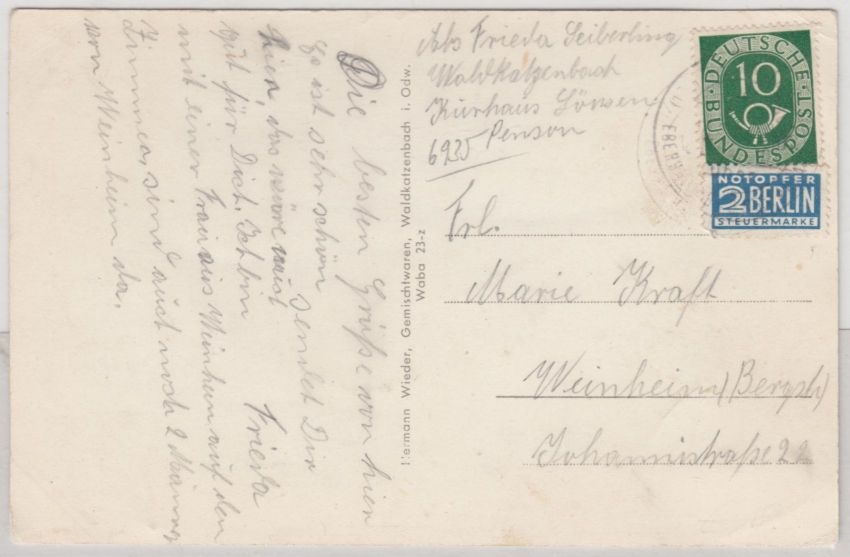 Die besten Grüße von hier
sendet Dir
Frieda
Es ist sehr schön
hier, das wäre auch
gut für Dich. Ich bin
mit einer Frau aus Weinheim auf dem
Zimmer, sind auch noch 2 Männer
von Weinheim da.
Hermann Wieder, Gemischtwaren, Waldkatzenbach i. Odw.
Waba 23-z
Abs Frieda Seiberling
Waldkatzenbach
Kurhaus Löwen
6935 Penson
DEUTSCHE BUNDESPOST
10
NOTOPFER
2 BERLIN
STEUERMARKE
EBERB
Frl.
Marie Kraft
Weinheim (Bergstr)
Johannisstraße 22